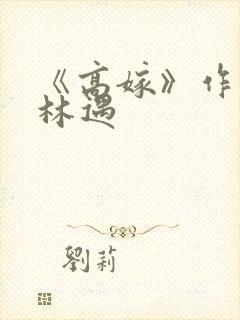 《高嫁》作
林遇
劉莉